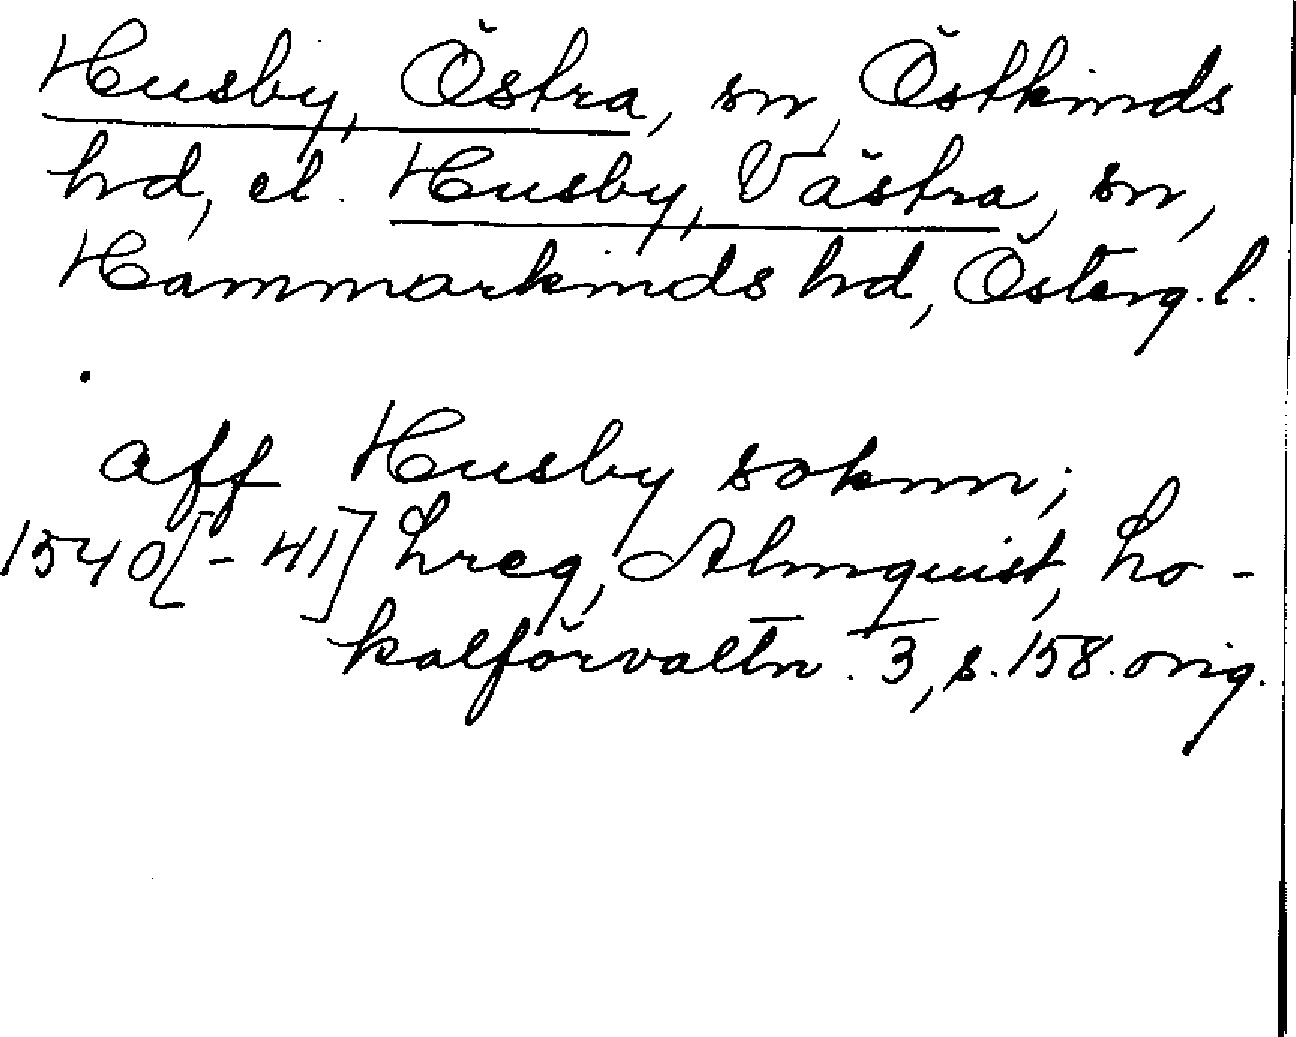 Husby, Östra, sn, Östkinds
hrd, el. Husby, Västra, sn,
Hammarkinds hrd, Österg. l.
aff Husby soknn;
1540[-41] Lreg, Almquist, Lo-
kalförvaltn. 3, s. 158. orig.